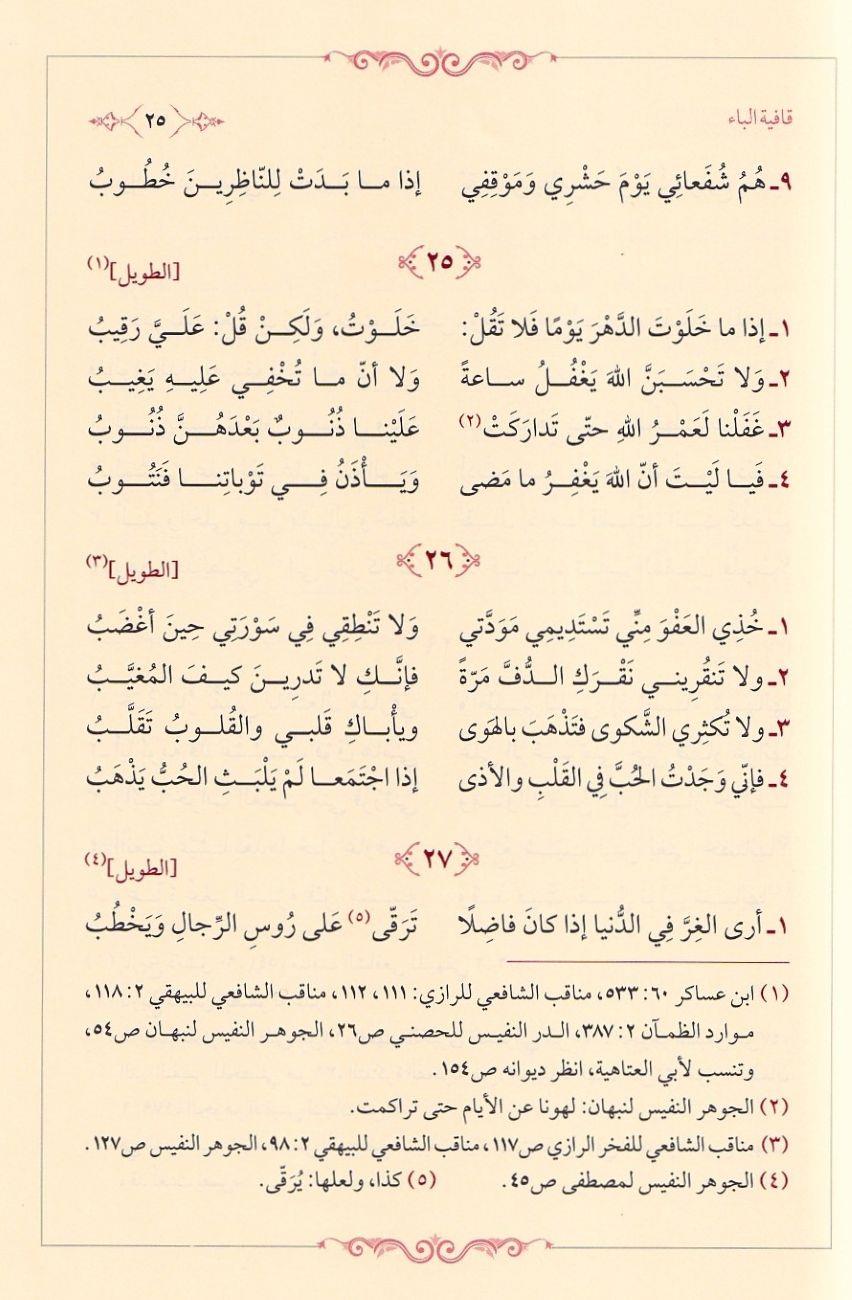 قافية الباء ٢٥
٩ـ هُمُ شُفَعائِي يَوْمَ حَشْرِي وَمَوْقِفِي إذا ما بَدَتْ لِلنّاظِرِينَ خُطُوبُ
٢٥
[الطويل](١)
١ـ إذا ما خَلَوْتَ الدَّهْرَ يَوْمًا فَلا تَقُلْ: خَلَوْتُ، وَلَكِنْ قُلْ: عَلَيَّ رَقِيبُ
٢ـ وَلا تَحْسَبَنَّ اللهَ يَغْفُلُ ساعةً وَلا أنّ ما تُخْفِي عَلِيهِ يَغِيبُ
٣ـ غَفَلْنا لَعَمْرُ اللهِ حتّى تَدارَكَتْ(٢) عَلَيْنا ذُنُوبٌ بَعْدَهُنَّ ذُنُوبُ
٤ـ فَيا لَيْتَ أنّ اللهَ يَغْفِرُ ما مَضى وَيَأْذَنُ فِي تَوْباتِنا فَنَتُوبُ
٢٦
[الطويل](٣)
١ـ خُذِي العَفْوَ مِنِّي تَسْتَدِيمِي مَوَدَّتي وَلا تَنْطِقِي فِي سَوْرَتِي حِينَ أغْضَبُ
٢ـ ولا تَنقُرِيني نَقْرَكِ الدُّفَّ مَرّةً فإنَّكِ لا تَدرِينَ كيفَ المُغيَّبُ
٣ـ ولا تُكثِري الشَّكوى فتَذْهَبَ بالهَوى ويأْباكِ قَلبي والقُلوبُ تَقَلَّبُ
٤ـ فإنّي وَجَدْتُ الحُبَّ فِي القَلْبِ والأذى إذا اجْتَمَعا لَمْ يَلْبَثِ الحُبُّ يَذْهَبُ
٢٧
[الطويل](٤)
١ـ أرى الغِرَّ فِي الدُّنيا إذا كانَ فاضِلًا تَرَقّى(٥) عَلى رُوسِ الرِّجالِ وَيَخْطُبُ
(١) ابن عساكر ٦٠: ٥٣٣، مناقب الشافعي للرازي: ١١١، ١١٢، مناقب الشافعي للبيهقي ٢: ١١٨،
موارد الظمآن ٢: ٣٨٧، الدر النفيس للحصني ص٢٦، الجوهر النفيس لنبهان ص٥٤،
وتنسب لأبي العتاهية، انظر ديوانه ص١٥٤.
(٢) الجوهر النفيس لنبهان: لهونا عن الأيام حتى تراكمت.
(٣) مناقب الشافعي للفخر الرازي ص١١٧، مناقب الشافعي للبيهقي ٢: ٩٨، الجوهر النفيس ص١٢٧.
(٤) الجوهر النفيس لمصطفى ص٤٥. (٥) كذا، ولعلها: يُرَقّى.